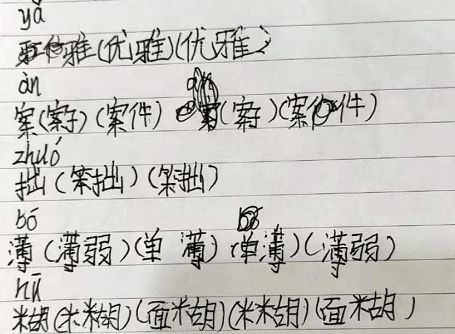 yǎ
雅(优雅)(优雅)
àn
案(案子)(案件) 案(案子)(案件)
zhuó
拙(笨拙)(笨拙)
bó
薄(薄弱)(单薄)(单薄)(薄弱)
hū
糊(米糊)(面糊)(米糊)(面糊)